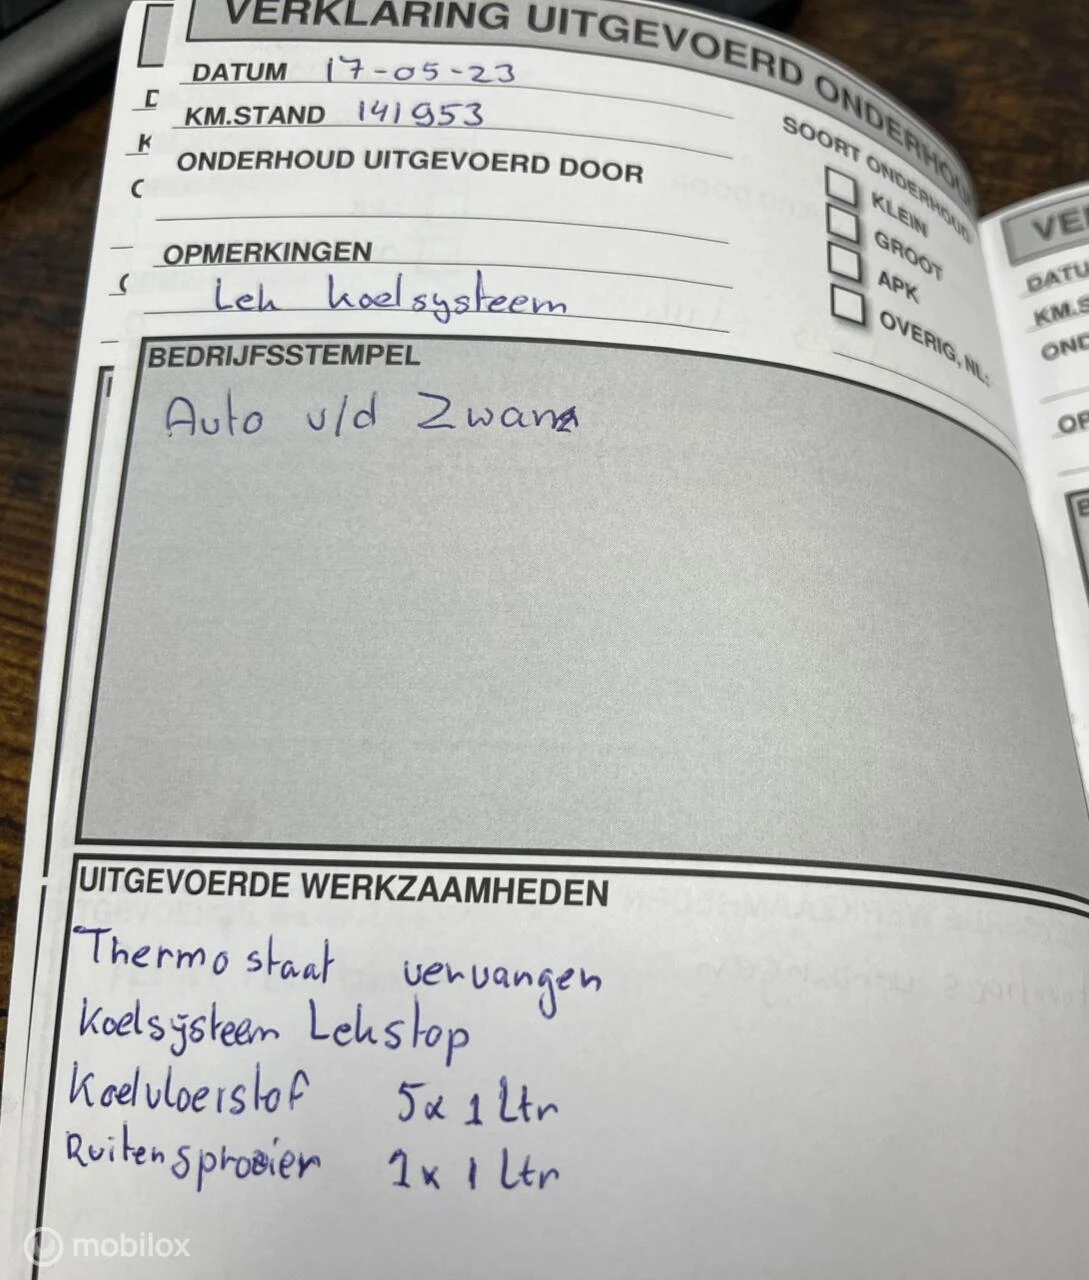 VERKLARING UITGEVOERD ONDERHOU
DATUM 17-05-23
KM.STAND 141953
ONDERHOUD UITGEVOERD DOOR
OPMERKINGEN
Lek koelsysteem
SOORT ONDERHOUD
KLEIN
GROOT
APK
OVERIG, NL:
BEDRIJFSSTEMPEL
Auto v/d Zwan
UITGEVOERDE WERKZAAMHEDEN
Thermostaat vervangen
Koelsysteem Lekstop
Koelvloeistof 5x 1 Ltr
Ruitensproeier 1x 1 Ltr
VE
DATU
KM.S
OND
OP
mobilox